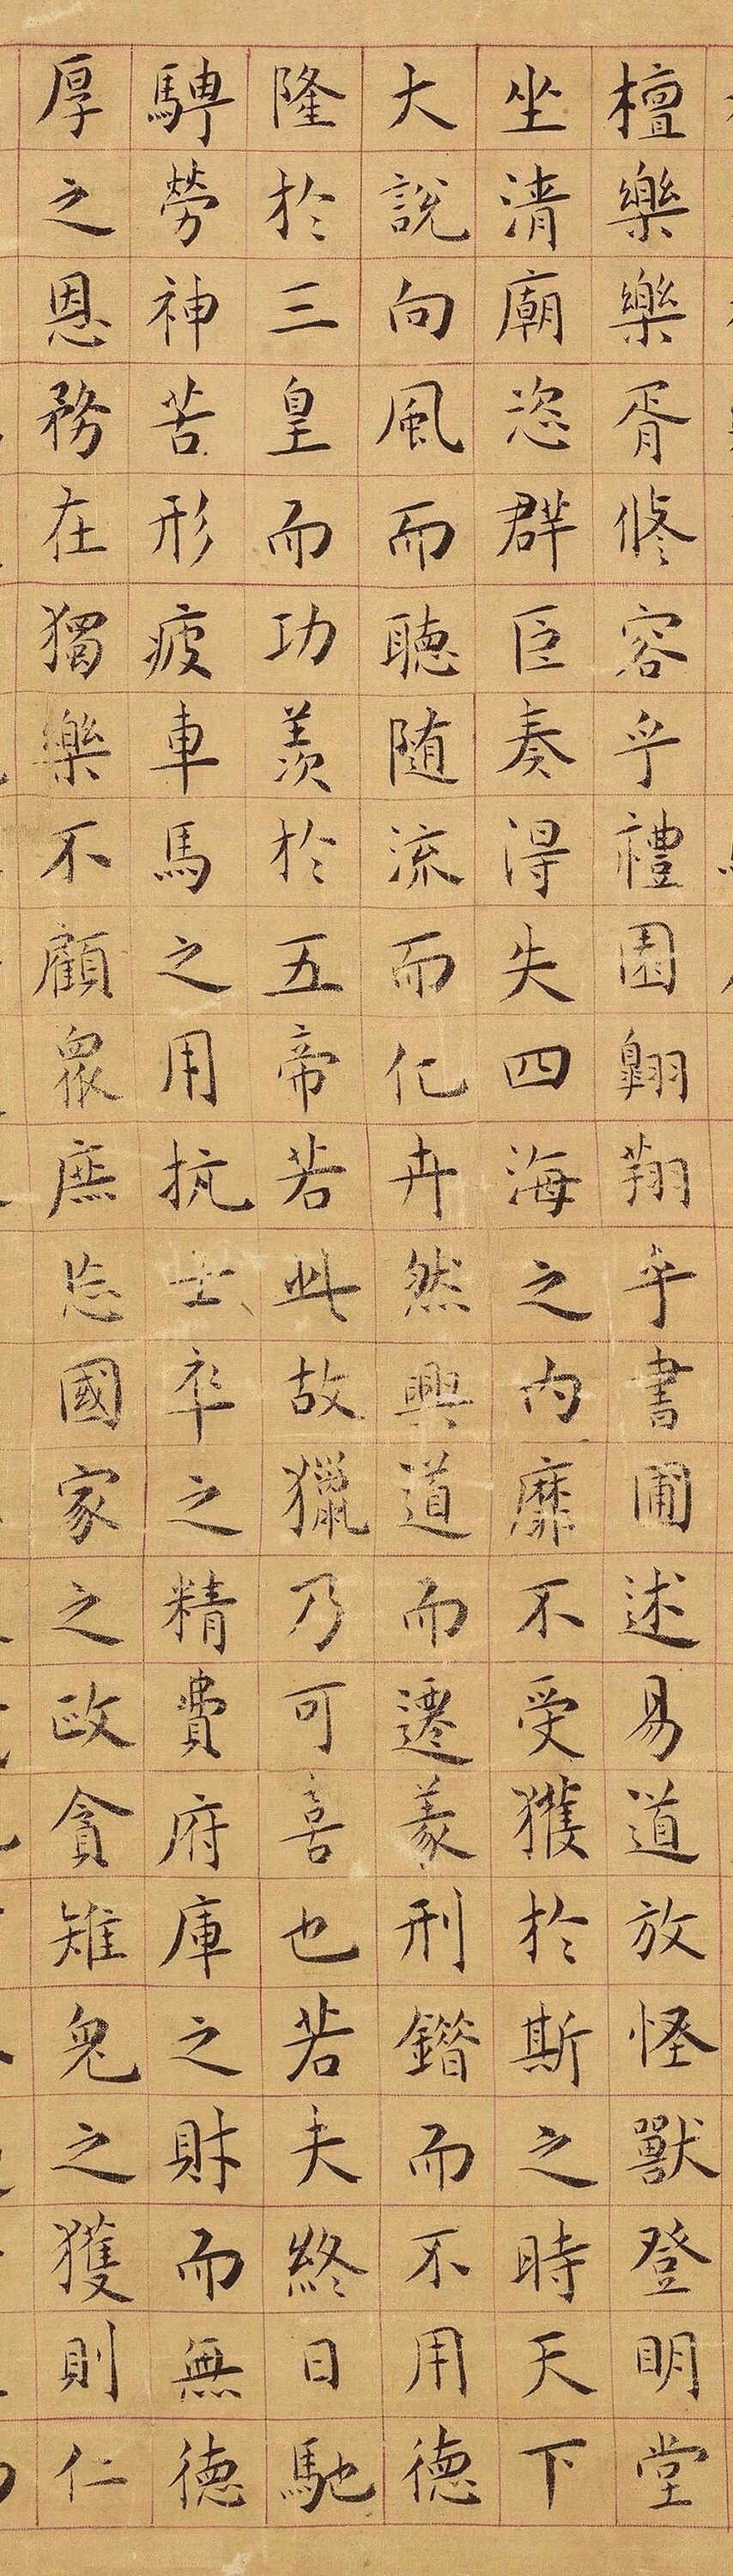 檀樂樂胥修容乎禮園翱翔乎書圃述易道放怪獸登明堂
坐清廟恣群臣奏得失四海之內靡不受獲於斯之時天下
大說向風而聽随流而化卉然興道而遷義刑錯而不用德
隆於三皇而功羨於五帝若此故獵乃可喜也若夫終日馳
騁勞神苦形疲車馬之用抏士卒之精費府庫之財而無德
厚之恩務在獨樂不顧衆庶忘國家之政貪雉兔之獲則仁